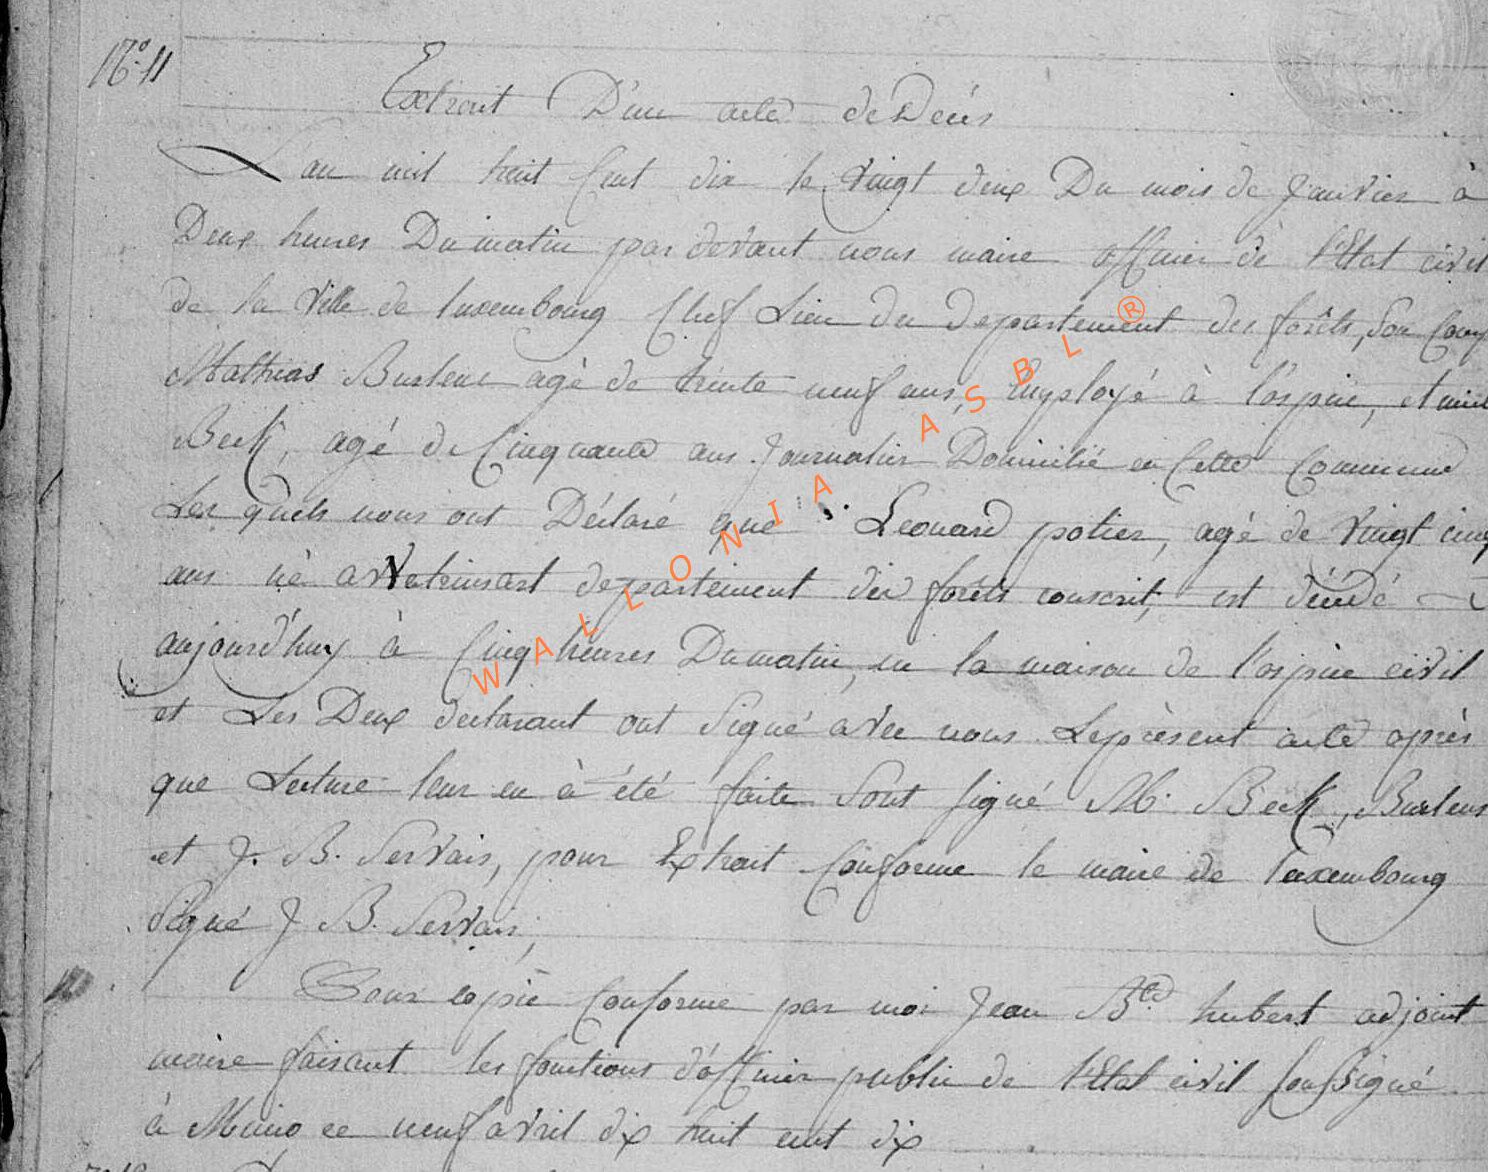 N°. 11
Extrait D'un acte de Decés
L'an mil huit Cent dix le Vingt deux Du mois de Janvier à
Deux heures Du matin par devant nous maire officier de l'Etat civil
de la Ville de luxembourg Chef Lieu du departement des forêts, Son Comp
Mathias Burleus agé de trente neuf ans, Employé à l'ospice, et
Beck, agé de Cinquante ans Journalier Domicilié en Cette Commune
Les quels nous ont Déclaré que Leonard potier, agé de Vingt cinq
ans né a departement des forêts conscrit, est décédé
aujourd'huy à Cinq heures Du matin, en la maison de l'ospice civil
et Les Deux declarant ont Signé avec nous Leprèsent acte après
que Lecture leur en à été faite Sont signé M. Beck, Burleus
et J. B. Servais, pour Extrait Conforme le maire de Luxembourg
Signé J B. Servais,
Pour copie Conforme par moi Jean Bte hubert adjoint
maire faisant les fonctions d'officier public de l'Etat civil soussigné
à ce neuf avril dix huit cent dix
WALLONIA ASBL ®